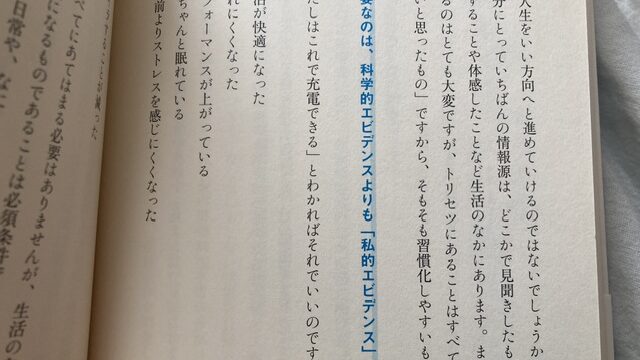 人生をいい方向へと進めていけるのではないでしょうか
分にとっていちばんの情報源は、どこかで見聞きしたも
することや体感したことなど生活のなかにあります。ま
るのはとても大変ですが、トリセツにあることはすべて
いと思ったもの」ですから、そもそも習慣化しやすいも
要なのは、科学的エビデンスよりも「私的エビデンス」
たしはこれで充電できる」とわかればそれでいいのです
活が快適になった
れにくくなった
フォーマンスが上がっている
ちゃんと眠れている
前よりストレスを感じにくくなった
べてにあてはまる必要はありませんが、生活の
になるものであることは必須条件
日常や、